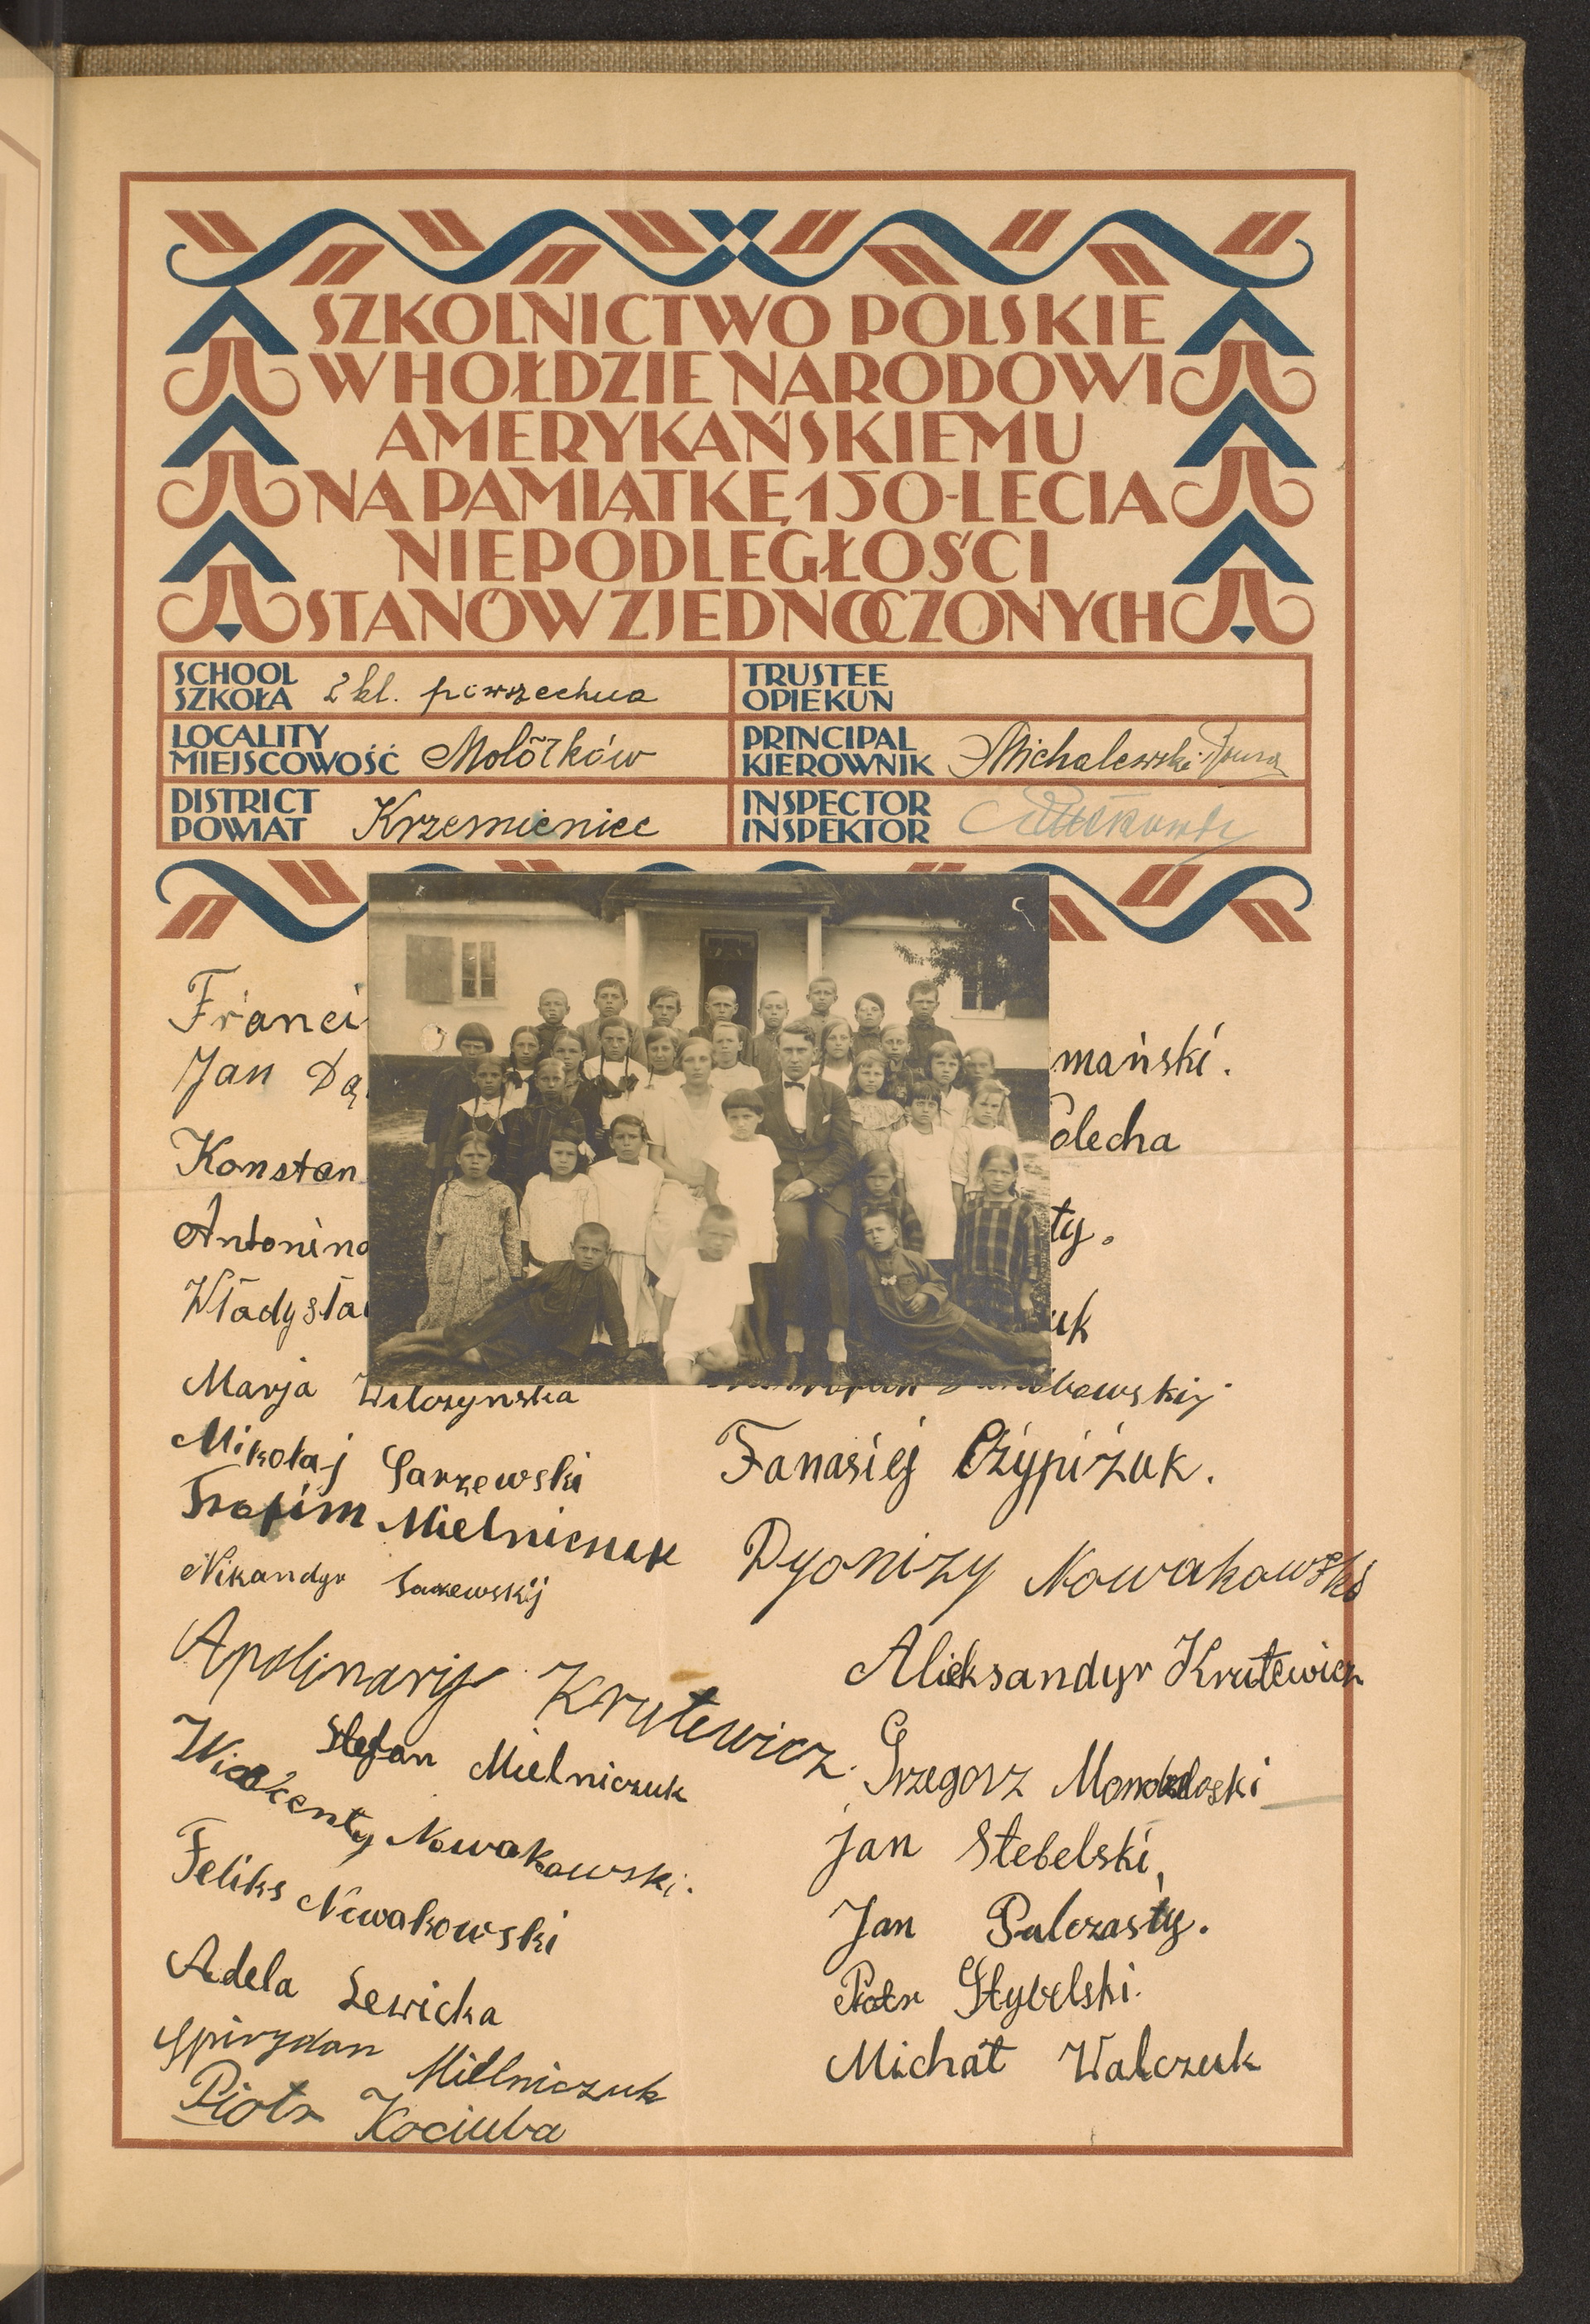 SZKOLNICTWO POLSKIE
W HOŁDZIE NARODOWI
AMERYKAŃSKIEMU
NA PAMIĄTKĘ 150-LECIA
NIEPODLEGŁOŚCI
STANÓW ZJEDNOCZONYCH
SCHOOL
SZKOŁA 2 kl. powszechna
TRUSTEE
OPIEKUN
LOCALITY
MIEJSCOWOŚĆ Mołotków
PRINCIPAL
KIEROWNIK Michalewski
DISTRICT
POWIAT Krzemieniec
INSPECTOR
INSPEKTOR
Franci
Jan Dą
Konstan
Antonina
Władysła
Marja Wilczyńska
Mikołaj Sarzewski
Trofim Mielniczuk
Nikandyr Sarzewskij
Apolinarij Krutewicz.
Stefan Mielniczuk
Wincenty Nowakowski.
Feliks Nowakowski
Adela Lewicka
Spirydan Mielniczuk
Piotr Kociuba
mański.
olecha
ty.
uk
Fanasiej
Dyonizy Nowakowski
Alieksandyr Krutewicz
Grzegorz
Jan Stebelski,
Jan Palczasty.
Piotr Stybelski.
Michał Walczuk